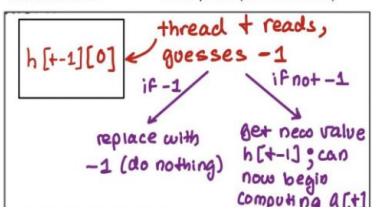 thread t reads,
h[t-1][0]
guesses -1
if -1
if not -1
replace with
-1 (do nothing)
get new value
h[t-1]; can
now begin
computing a[t]